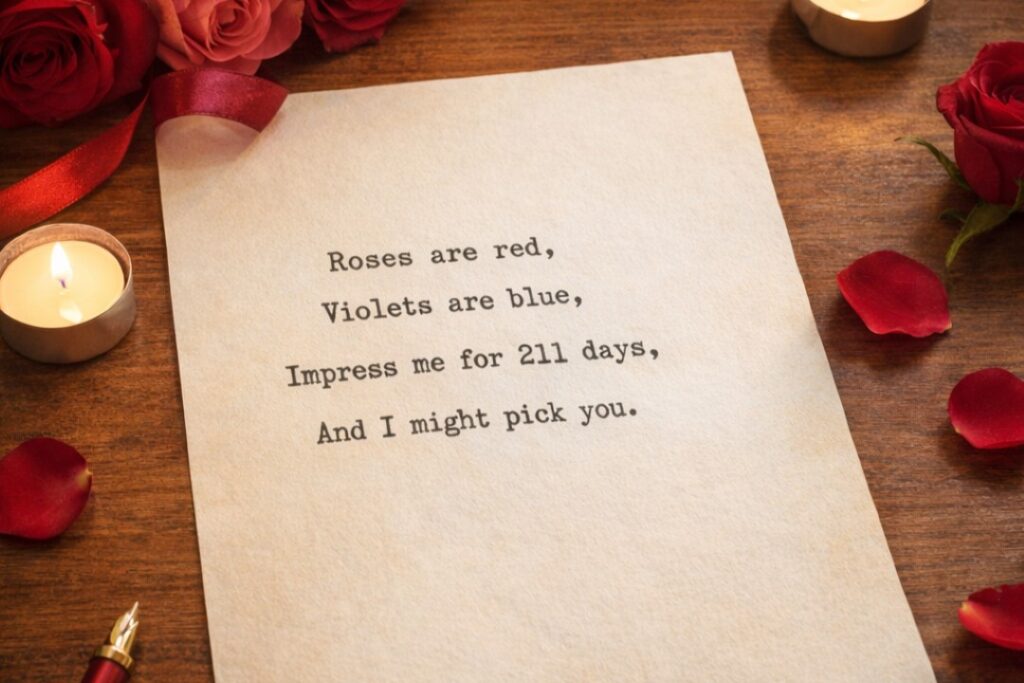 Roses are red,
Violets are blue,
Impress me for 211 days,
And I might pick you.